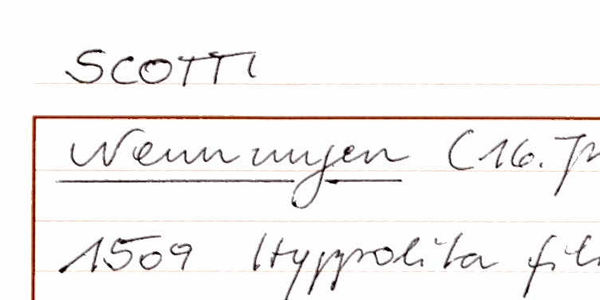 SCOTTI
Nennungen (16.
1509 Hyppolita